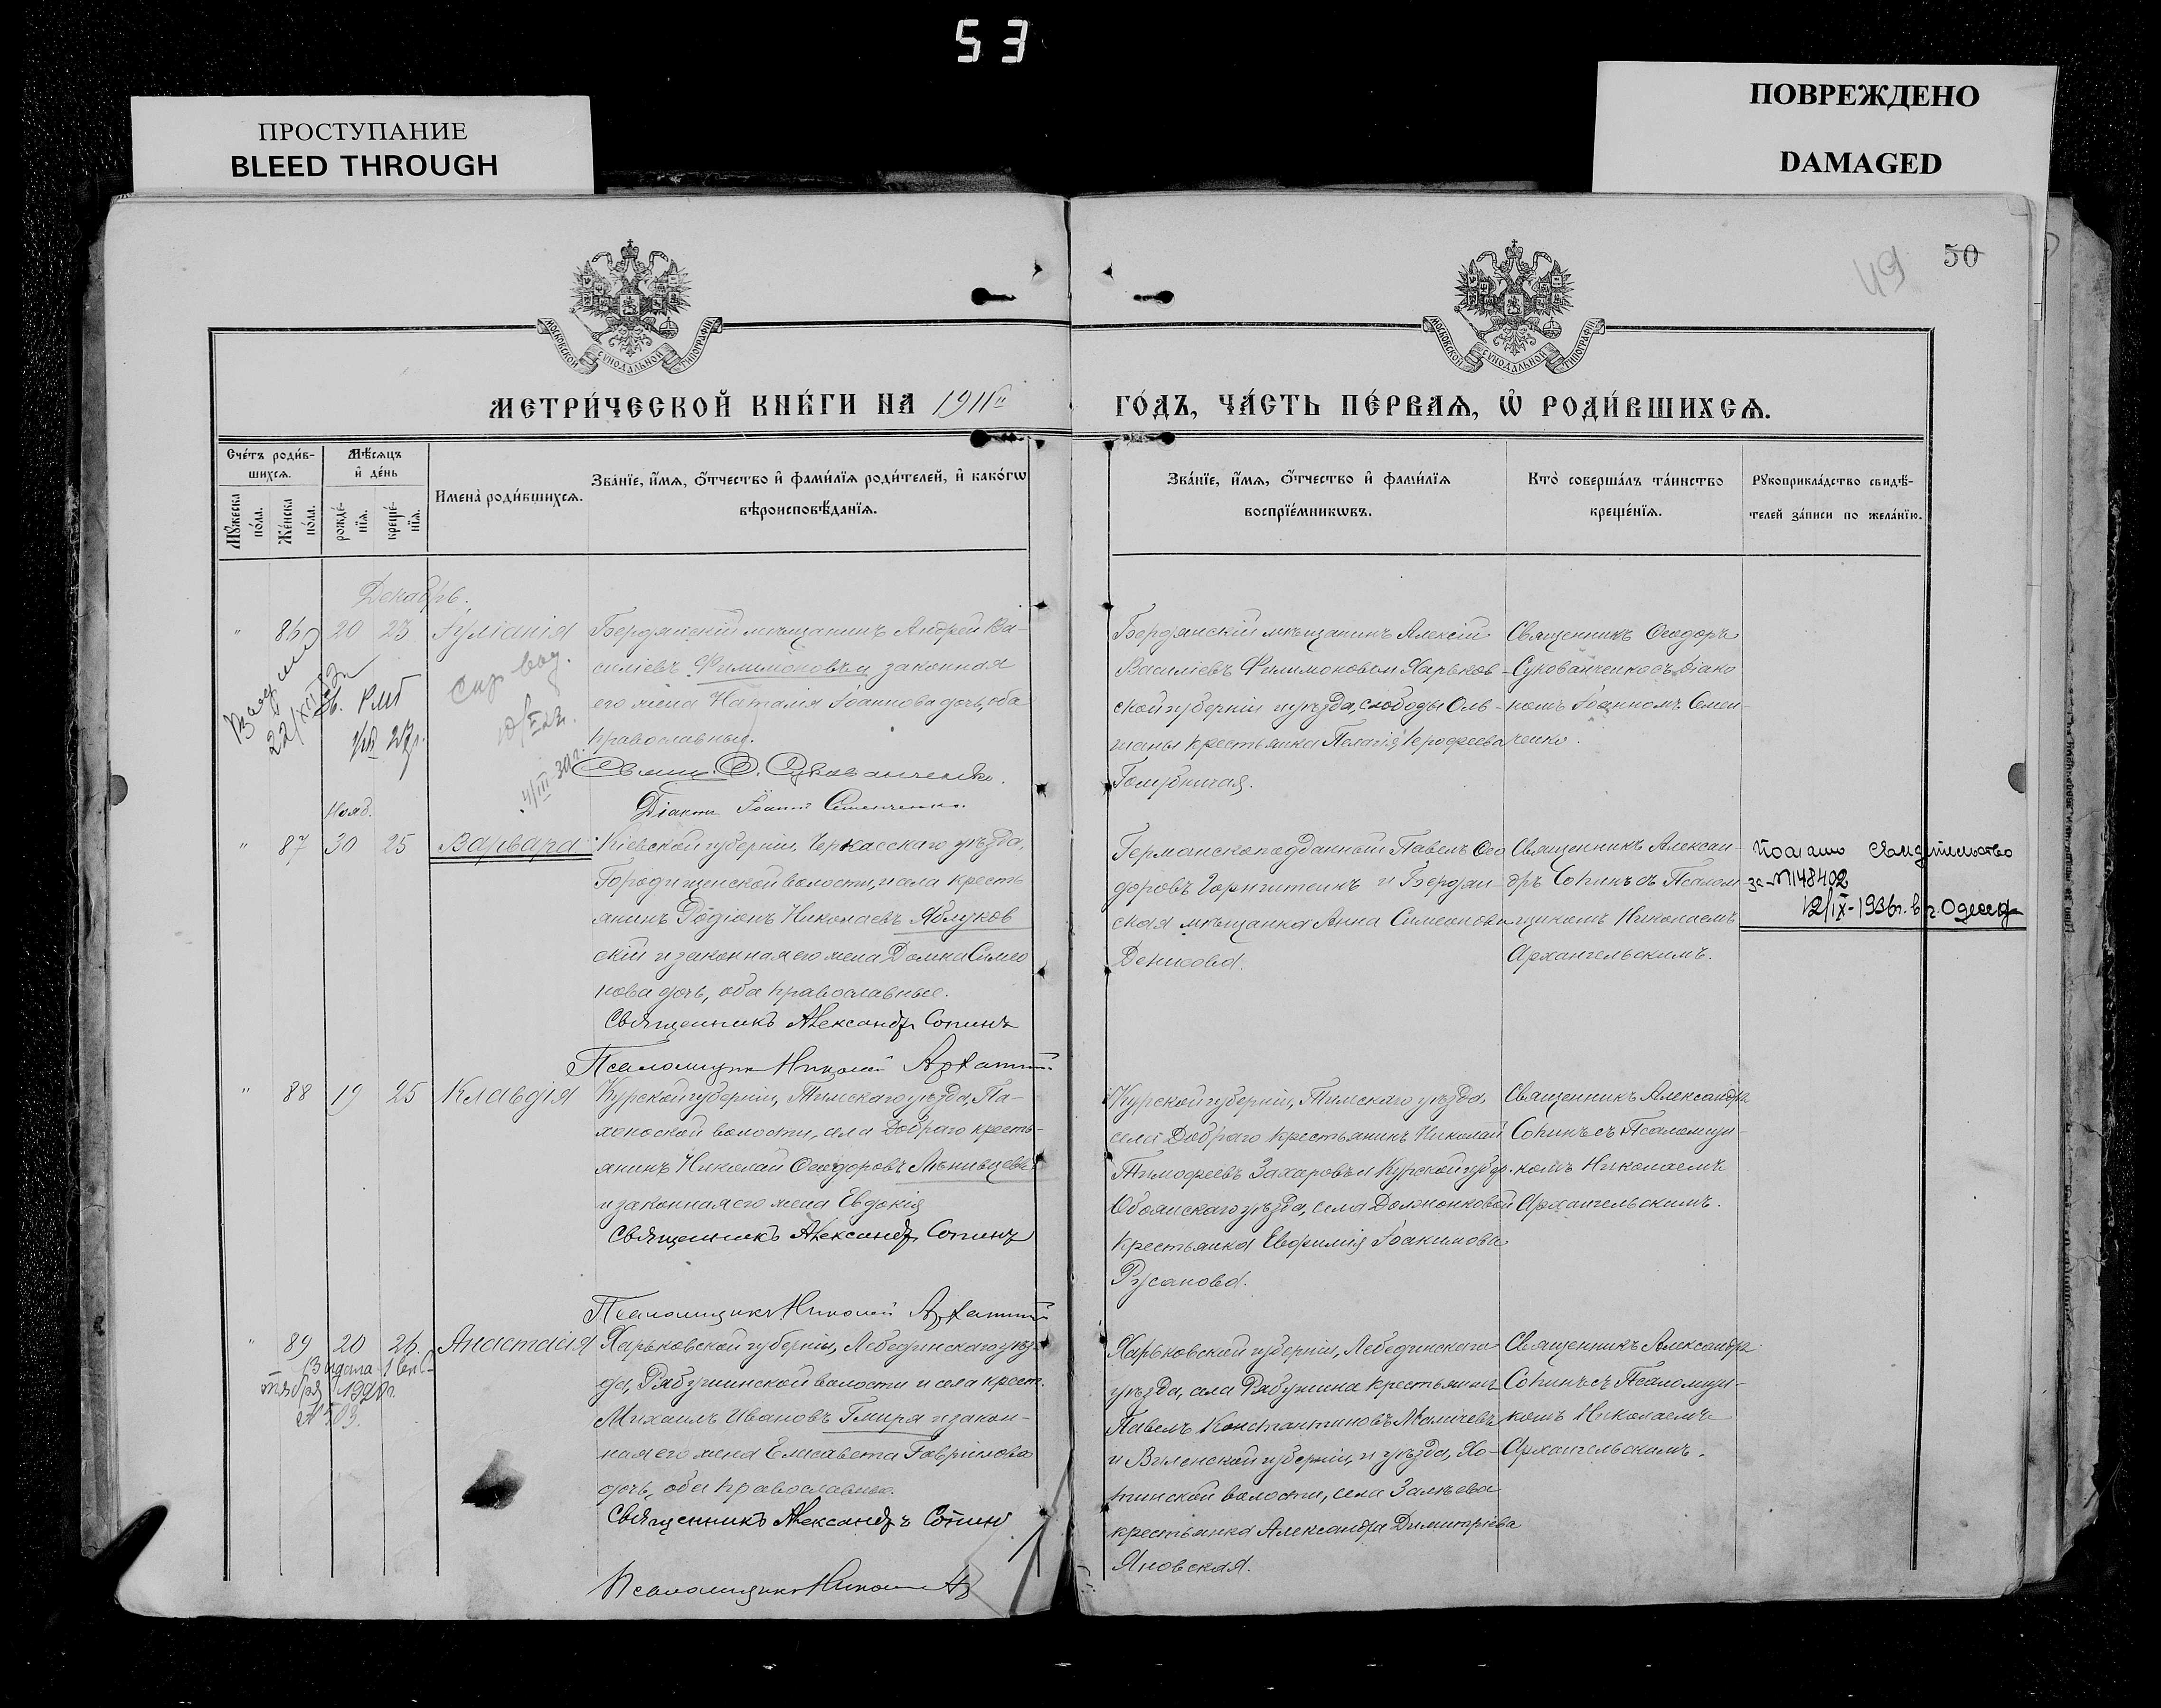 53
ПРОСТУПАНИЕ
BLEED THROUGH
ПОВРЕЖДЕНО
DAMAGED
49
50
МОСКОВСКОЙ СѴНОДАЛЬНОЙ ТИПОГРАФІИ
МОСКОВСКОЙ СѴНОДАЛЬНОЙ ТИПОГРАФІИ
МЕТРИ́ЧЕСКОЙ КНИ́ГИ НА 1911й
ГО́ДЪ, ЧА́СТЬ ПЕ́РВАѦ, Ѡ РОДИ́ВШИХСѦ.
Сче́тъ роди́в-
шихсѧ.
Мꙋ́жеска по́ла.
Же́нска по́ла.
Мѣ́сѧцъ
и҆ де́нь
рожде́-
нїѧ.
креще́-
нїѧ.
Имена̀ роди́вшихсѧ.
Зва́нїе, и҆́мѧ, ѻ҆́тчество и҆ фами́лїѧ роди́телей, и҆ како́гѡ
вѣроисповѣ́данїѧ.
Зва́нїе, и҆́мѧ, ѻ҆́тчество и҆ фами́лїѧ
воспрїе́мникѡвъ.
Кто̀ соверша́лъ та́инство
креще́нїѧ.
Рꙋкоприкла́дство свидѣ́-
телей за́писи по жела́нїю.
Декабрь.
" 86 20 23 Іуліанія
Бердянскій мѣщанинъ Андрей Ва-
силіевъ Филимоновъ и законная
его жена Наталія Іоаннова дочь, оба
православные.
Свящ. Ѳ. Сукованченко.
Діаконъ Іоаннъ Семенченко.
22/XII
4/III-30г.
Бердянскій мѣщанинъ Алексій
Василіевъ Филимоновъ и Харьков-
ской губерніи и уѣзда, слободы Оль-
шаны крестьянка Пелагія Іерофеева
Голубничая.
Священникъ Ѳеодоръ
Сукованченко съ діако
номъ Іоанномъ Семен-
ченко.
Нояб.
" 87 30 25 Варвара
Кіевской губерніи, Черкасскаго уѣзда,
Городищенской волости, и села кресть
янинъ Родіонъ Николаевъ Яблуков
скій и законная его жена Домна Симео
нова дочь, оба православные.
Священникъ Александръ Сопинъ
Псаломщикъ Николай
Германскоподданный Павелъ Ѳео
доровъ Горнштейнъ и Бердян-
ская мѣщанка Анна Симеонови
Денисова.
Священникъ Алексан-
дръ Сопинъ съ Псалом
щикомъ Николаемъ
Архангельскимъ.
свидетельство
за №148402
12/IX-1936г. в г. Одессе
" 88 19 25 Клавдія
Курской губерніи, Тимскаго уѣзда, Па-
хонской волости, села Добраго кресть-
янинъ Николай Ѳеодоровъ Лѣнивцевъ
и законная его жена Евдокія
Священникъ Александръ Сопинъ
Псаломщикъ Николай
Курской губерніи, Тимскаго уѣзда
села Добраго крестьянинъ Николай
Тимофеевъ Захаровъ и Курской губер.
Обоянскаго уѣзда, села Долженковой
крестьянка Евфимія Іоакимова
Русанова.
Священникъ Александръ
Сопинъ съ Псаломщи-
комъ Николаемъ
Архангельскимъ.
" 89 20 26. Анастасія
Выдана 1 сен-
тября 1928г.
№ 503.
Харьковской губерніи, Лебединскаго уѣз-
да, Рябушинской волости и села крест.
Михаилъ Ивановъ Гмиря и закон-
ная его жена Елисавета Гавріилова
дочь, оба православные.
Священникъ Александръ Сопинъ
Псаломщикъ Николай
Харьковской губерніи, Лебединскаго
уѣзда, села Рябушина крестьянинъ
Павелъ Константиновъ
и Виленской губерніи, и уѣзда,
волости, села
крестьянка Александра Димитріева
Яновская.
Священникъ Александръ
Сопинъ съ Псаломщи-
комъ Николаемъ
Архангельскимъ.